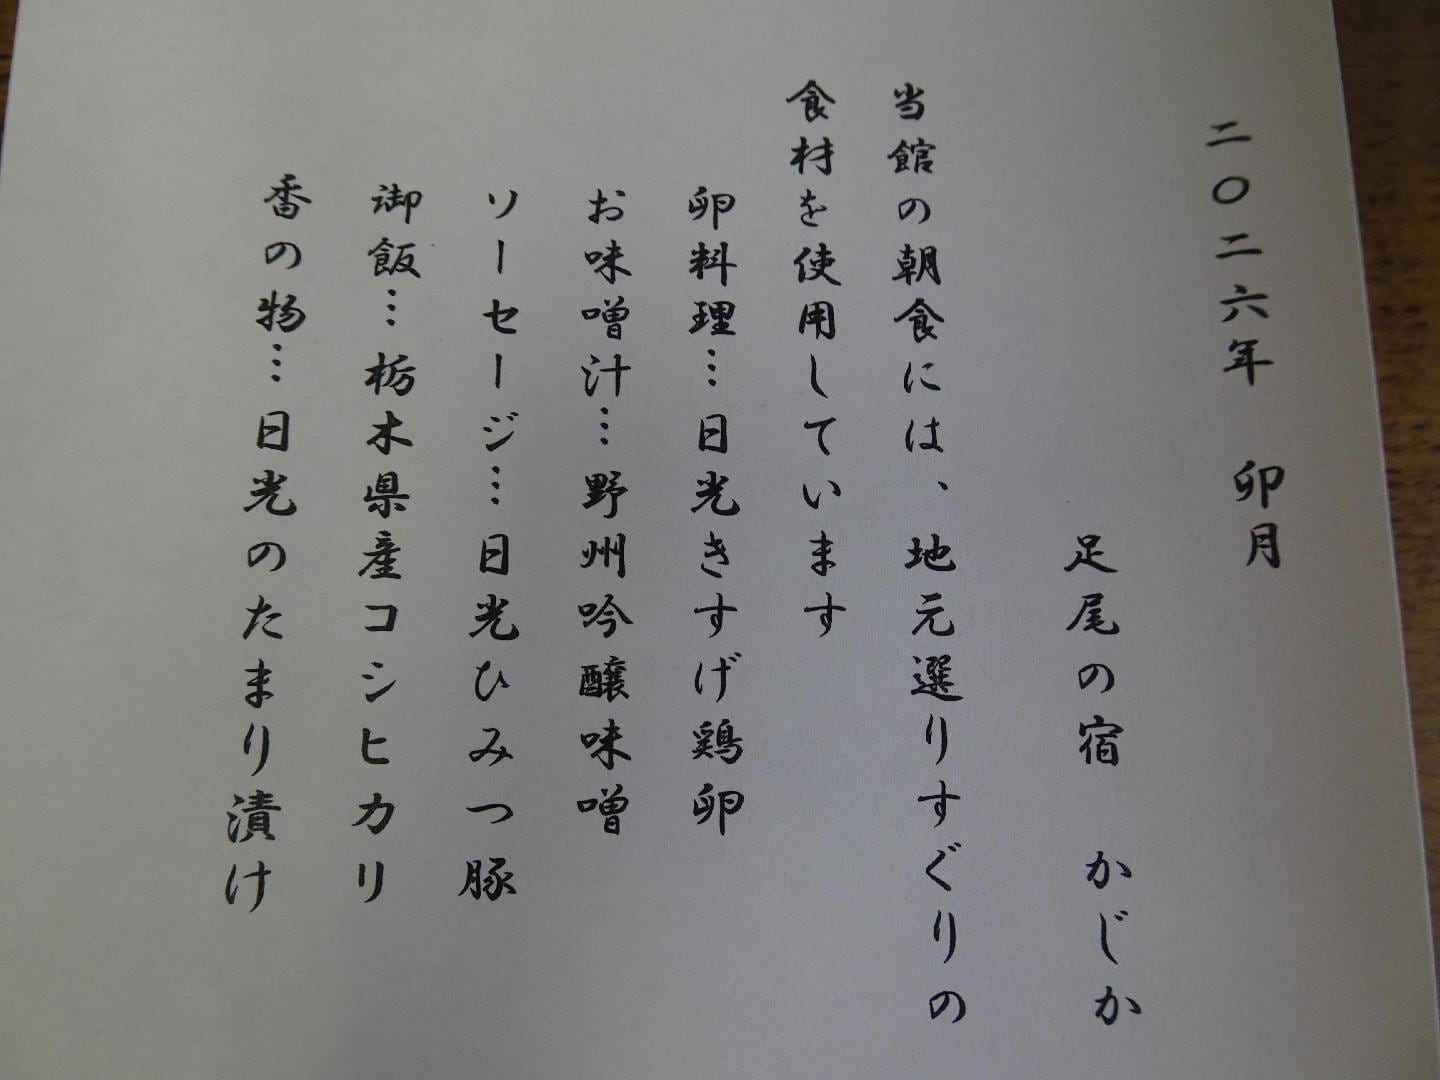 二〇二六年　卯月
足尾の宿　かじか
当館の朝食には、地元選りすぐりの
食材を使用しています
卵料理…日光きすげ鶏卵
お味噌汁…野州吟醸味噌
ソーセージ…日光ひみつ豚
御飯…栃木県産コシヒカリ
香の物…日光のたまり漬け